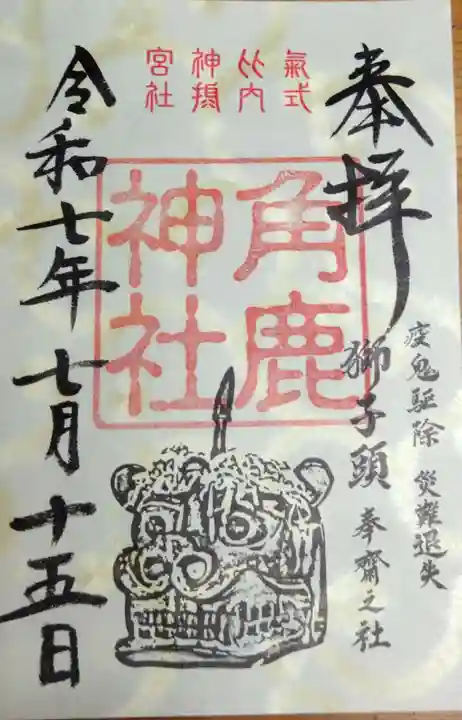 奉拝
疫鬼駆除 災難退失
獅子頭 奉齋之社
式内摂社
氣比神宮
角鹿
神社
令和七年七月十五日